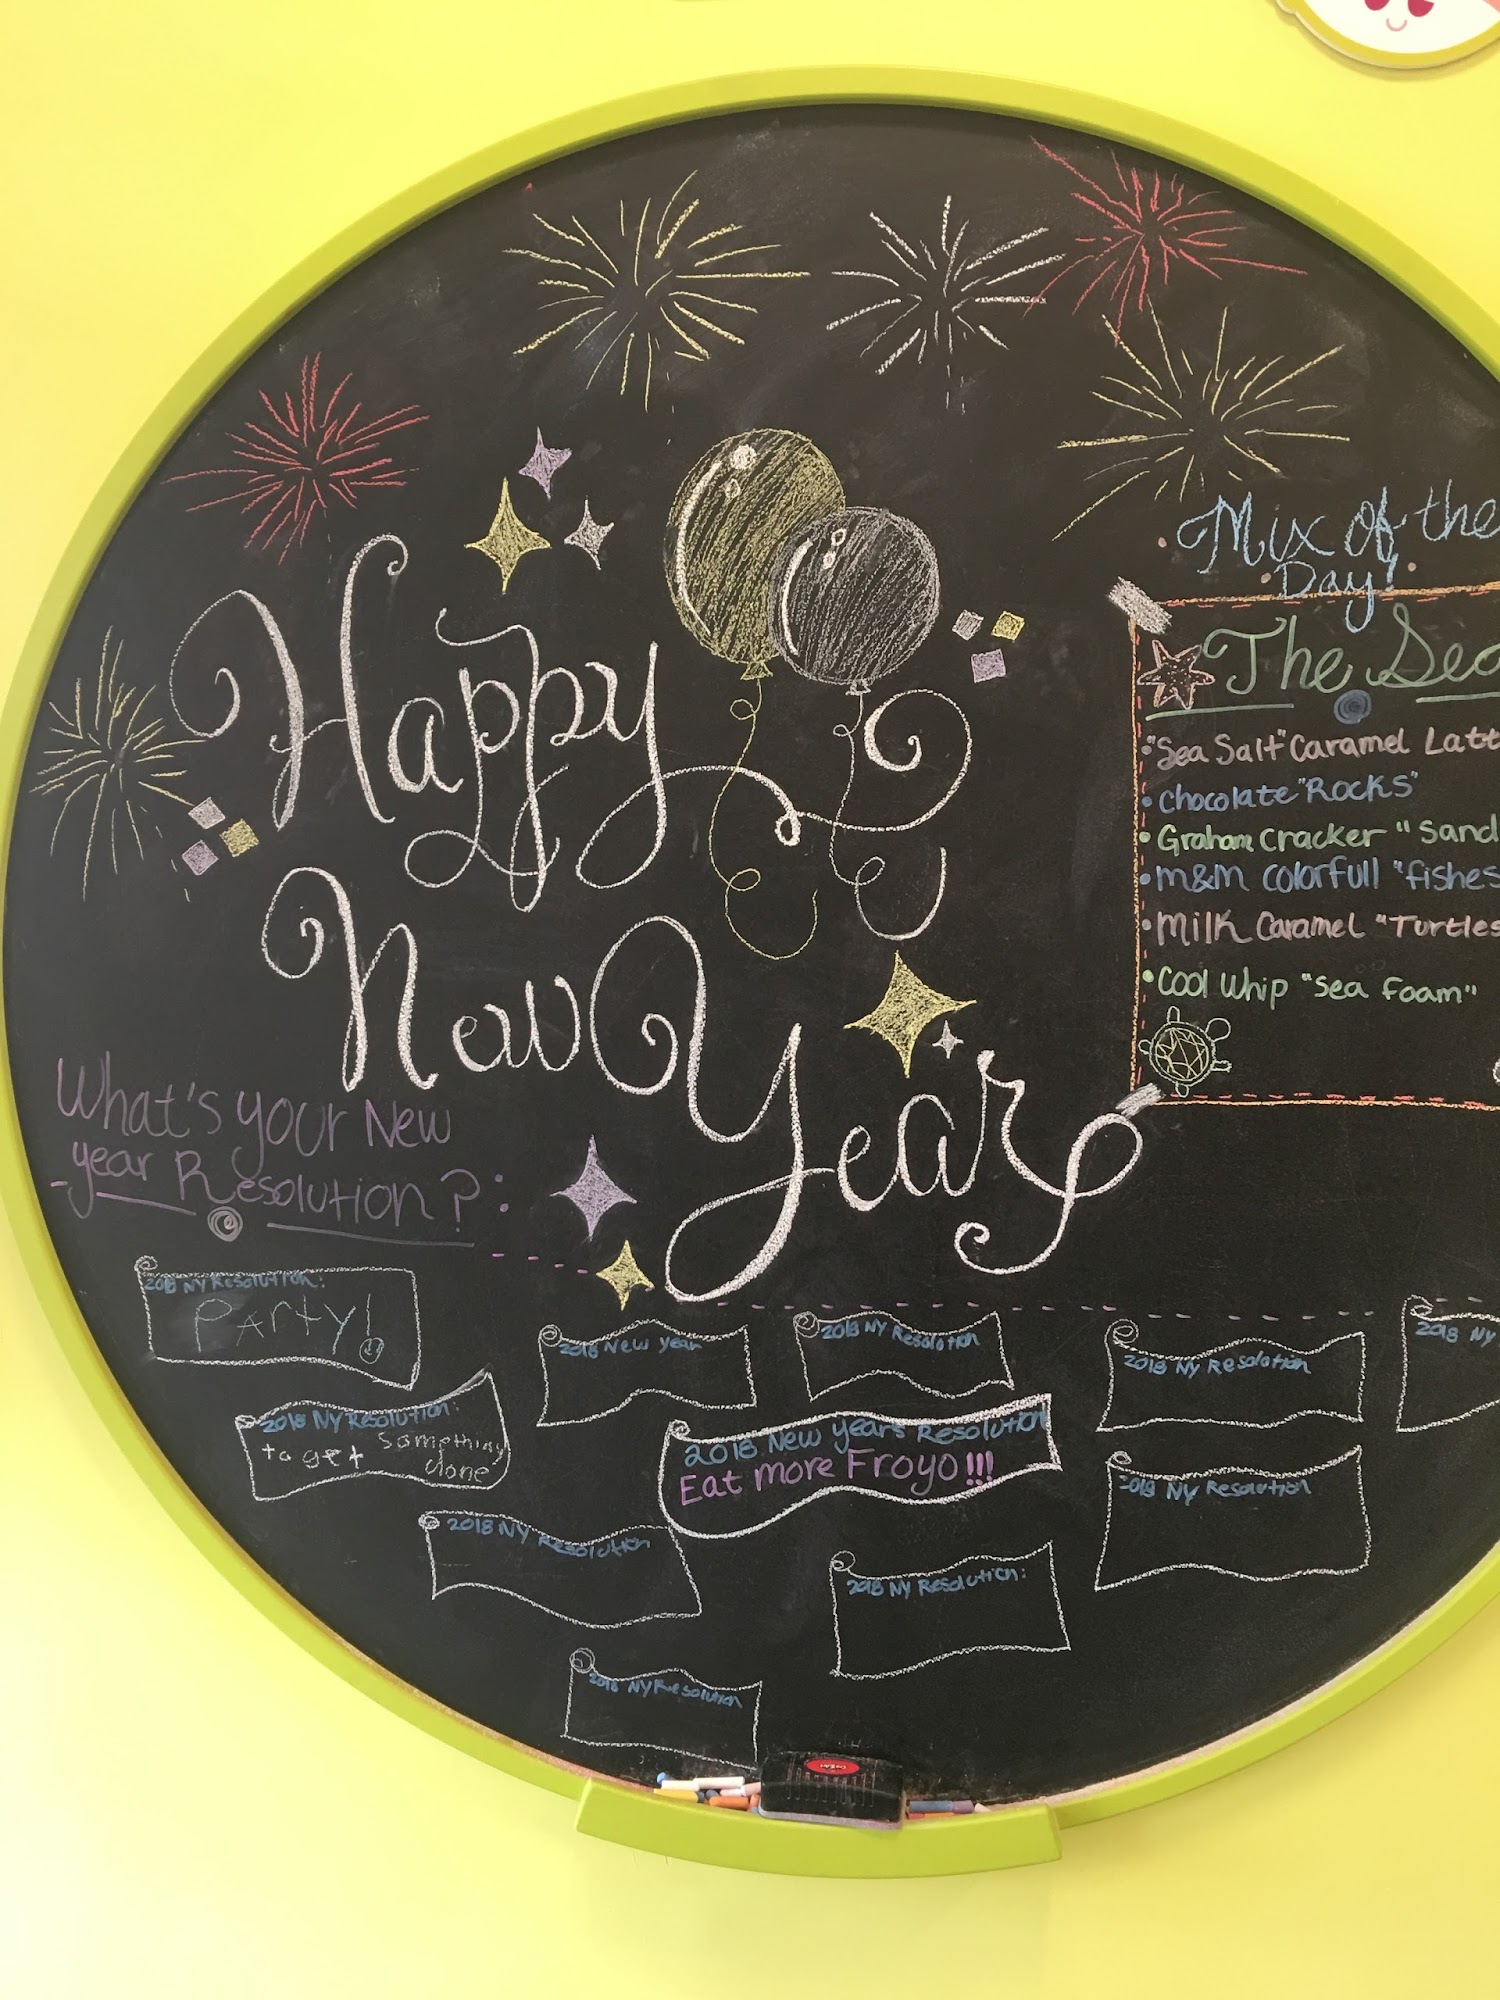 Happy
New
Year
Mix of the
Day!
The Sea
"Sea Salt" Caramel Latt
chocolate "Rocks"
Graham cracker "Sand
M&M colorfull "fishes
Milk Caramel "Turtles
Cool Whip "Sea Foam"
What's your New
year Resolution?
2018 NY Resolution:
PArty!
2018 NY Resolution:
to get something
done
2018 New year
2018 NY Resolution
2018 New years Resolution
Eat more Froyo!!!
2018 NY Resolution
2018 NY
2018 NY Resolution
2018 NY Resolution
2018 NY Resolution:
2018 NY Resolution